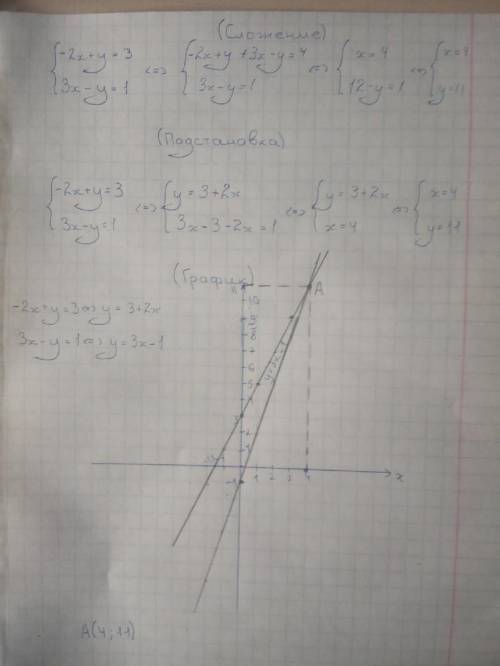 (Сложение)
{-2x+y=3 {3x-y=1 <=> {-2x+y+3x-y=4 {3x-y=1 <=> {x=4 {12-y=1 <=> {x=4 {y=11
(Подстановка)
{-2x+y=3 {3x-y=1 <=> {y=3+2x {3x-3-2x=1 <=> {y=3+2x {x=4 <=> {x=4 {y=11
(График)
-2x+y=3<=>y=3+2x
3x-y=1<=>y=3x-1
A
11
10
9
8
7
6
5
4
3
2
1
y=3x-1
-1
1 2 3 4
x
A(4;11)